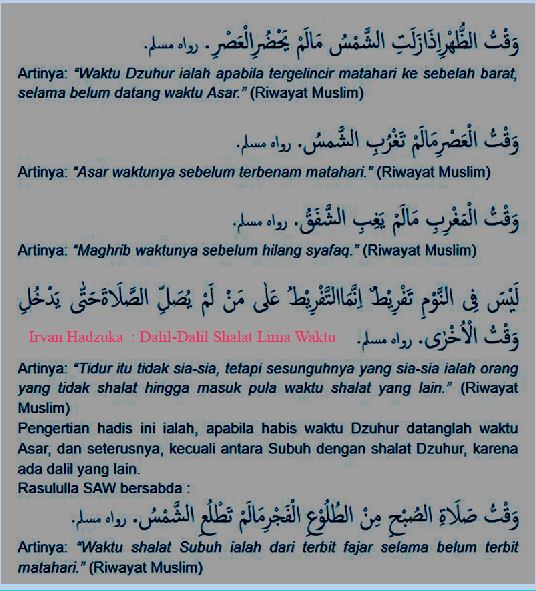 وَقْتُ الظُّهْرِاِذَازَلَتِ الشَّمْسُ مَالَمْ يَحْضُرِالْعَصْرِ. رواه مسلم.
Artinya: “Waktu Dzuhur ialah apabila tergelincir matahari ke sebelah barat,
selama belum datang waktu Asar.” (Riwayat Muslim)
وَقْتُ الْعَصْرِمَالَمْ تَغْرُبِ الشَّمْسُ. رواه مسلم.
Artinya: “Asar waktunya sebelum terbenam matahari.” (Riwayat Muslim)
وَقْتُ الْمَغْرِبِ مَالَمْ يَغِبِ الشَّفَقُ. رواه مسلم.
Artinya: “Maghrib waktunya sebelum hilang syafaq.” (Riwayat Muslim)
لَيْسَ فِى النَّوْمِ تَفْرِيْطٌ اِنَّمَاالتَّفْرِيْطُ عَلٰى مَنْ لَمْ يُصَلِّ الصَّلَاةَحَتّٰى يَدْخُلِ
وَقْتُ الْأُخْرٰى. رواه مسلم.
Irvan Hadzuka : Dalil-Dalil Shalat Lima Waktu
Artinya: “Tidur itu tidak sia-sia, tetapi sesungguhnya yang sia-sia ialah orang
yang tidak shalat hingga masuk pula waktu shalat yang lain.” (Riwayat
Muslim)
Pengertian hadis ini ialah, apabila habis waktu Dzuhur datanglah waktu
Asar, dan seterusnya, kecuali antara Subuh dengan shalat Dzuhur, karena
ada dalil yang lain.
Rasululla SAW bersabda :
وَقْتُ صَلَاةِ الصُّبْحِ مِنْ الطُّلُوْعِ الْفَجْرِمَالَمْ تَطْلُعِ الشَّمْسُ. رواه مسلم.
Artinya: “Waktu shalat Subuh ialah dari terbit fajar selama belum terbit
matahari.” (Riwayat Muslim)